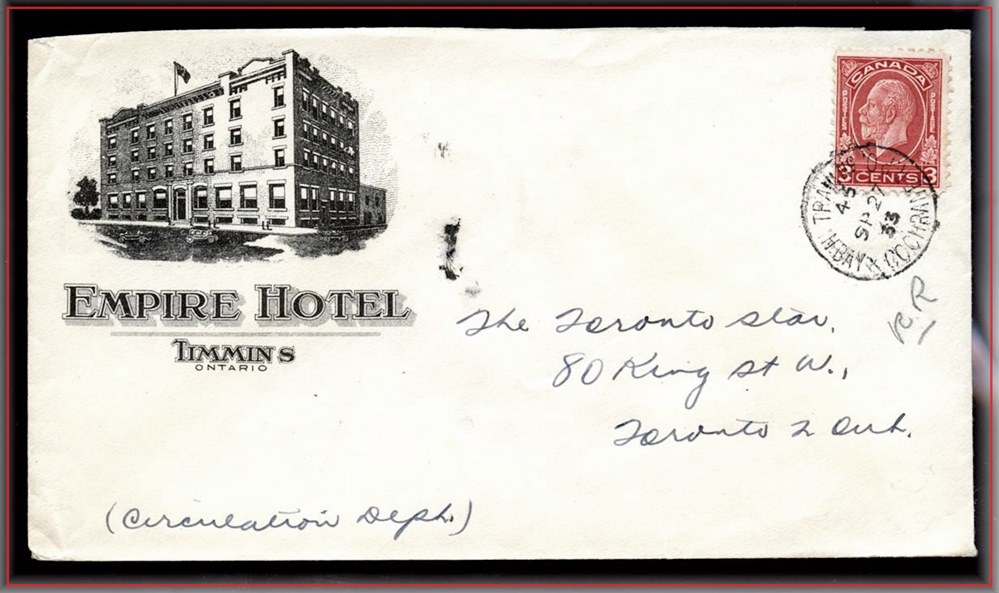 EMPIRE HOTEL
TIMMINS
ONTARIO
CANADA
POSTES POSTAGE
3 CENTS 3
45
SP 27
33
N.BAY & COCHRANE
R.R
The Toronto Star,
80 King St W.,
Toronto 2 Ont.
(Circulation Dept.)